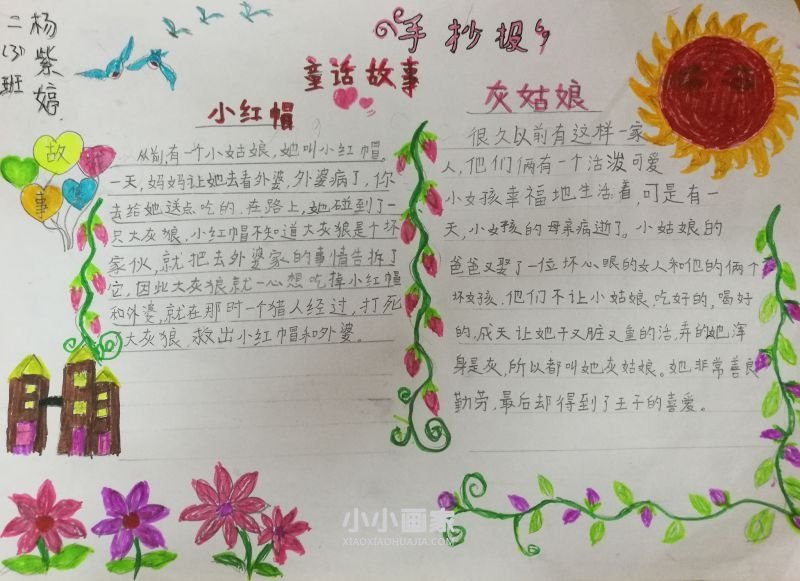 杨紫婷
二(3)班
手抄报
童话故事
故
事
小红帽
从前,有一个小姑娘,她叫小红帽。
一天,妈妈让她去看外婆,外婆病了,你
去给她送点吃的。在路上,她碰到了一
只大灰狼,小红帽不知道大灰狼是个坏
家伙,就把去外婆家的事情告拆了
它,因此大灰狼就一心想吃掉小红帽
和外婆,就在那时一个猎人经过,打死
大灰狼,救出小红帽和外婆。
灰姑娘
很久以前有这样一家
人,他们俩有一个活泼可爱
小女孩幸福地生活着,可是有一
天,小女孩的母亲病逝了。小姑娘的
爸爸又娶了一位坏心眼的女人和他的俩个
坏女孩,他们不让小姑娘吃好的,喝好
的,成天让她干又脏又重的活,弄的她浑
身是灰,所以都叫她灰姑娘。她非常善良
勤劳,最后却得到了王子的喜爱。
小小画家
XIAOXIAOHUAJIA.COM